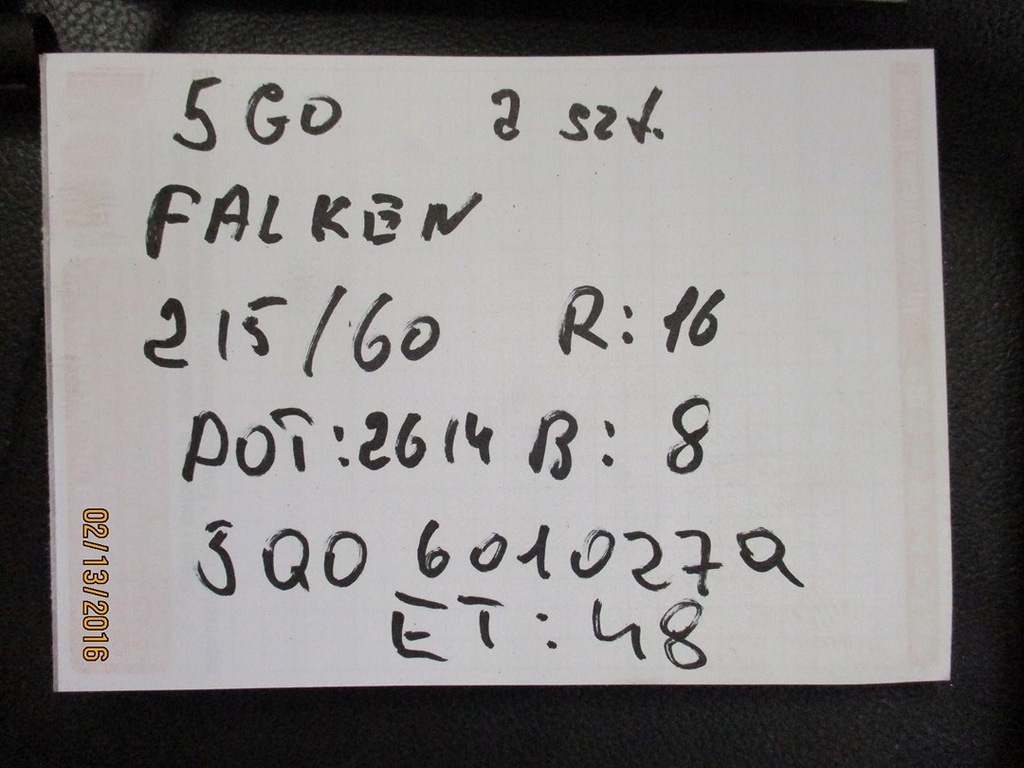 5GO 2 szt.
FALKEN
215/60 R:16
DOT:2614 B: 8
5QO 601027Q
ET:48
02/13/2016